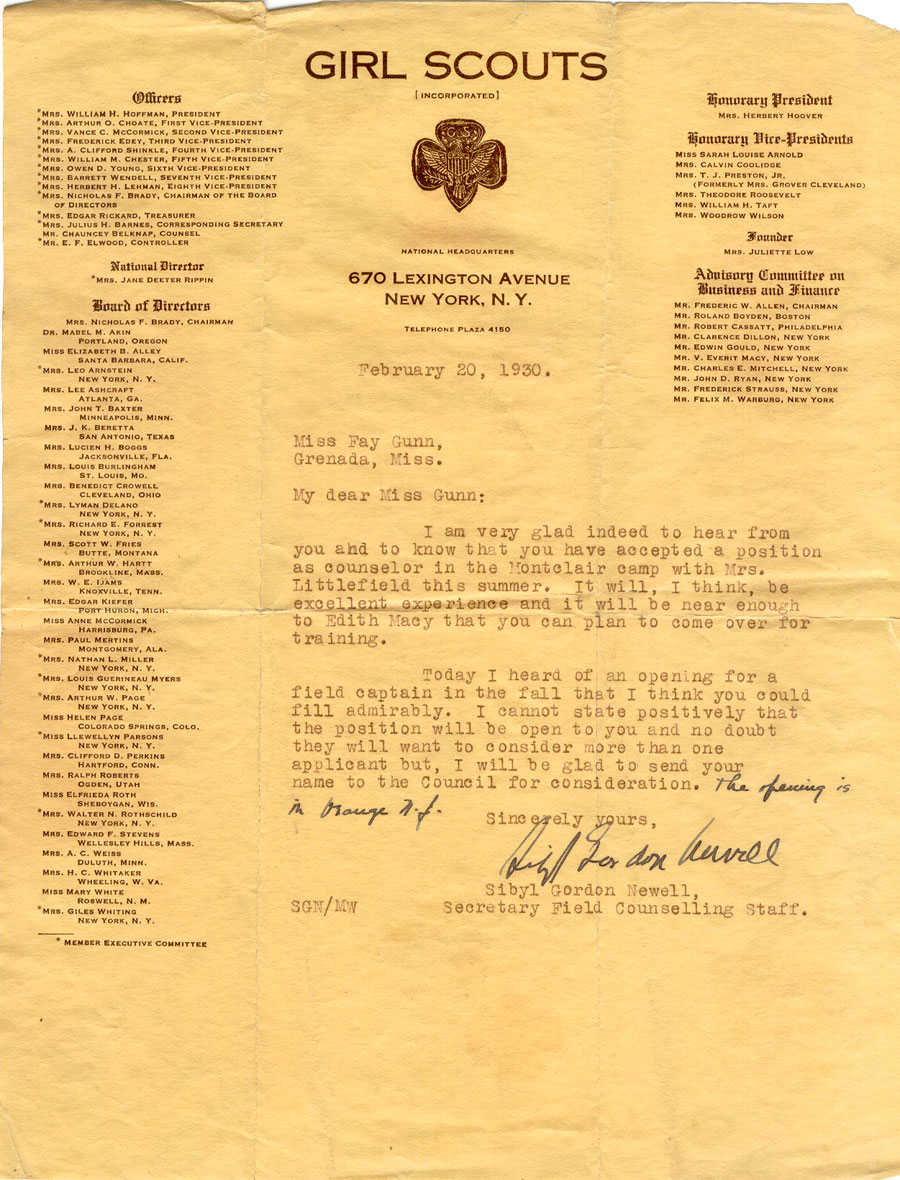 GIRL SCOUTS
[INCORPORATED]
G S
NATIONAL HEADQUARTERS
670 LEXINGTON AVENUE
NEW YORK, N. Y.
TELEPHONE PLAZA 4150
Officers
*MRS. WILLIAM H. HOFFMAN, PRESIDENT
*MRS. ARTHUR O. CHOATE, FIRST VICE-PRESIDENT
*MRS. VANCE C. MCCORMICK, SECOND VICE-PRESIDENT
*MRS. FREDERICK EDEY, THIRD VICE-PRESIDENT
*MRS. A. CLIFFORD SHINKLE, FOURTH VICE-PRESIDENT
*MRS. WILLIAM M. CHESTER, FIFTH VICE-PRESIDENT
*MRS. OWEN D. YOUNG, SIXTH VICE-PRESIDENT
*MRS. BARRETT WENDELL, SEVENTH VICE-PRESIDENT
*MRS. HERBERT H. LEHMAN, EIGHTH VICE-PRESIDENT
MRS. NICHOLAS F. BRADY, CHAIRMAN OF THE BOARD
OF DIRECTORS
*MRS. EDGAR RICKARD, TREASURER
*MRS. JULIUS H. BARNES, CORRESPONDING SECRETARY
MR. CHAUNCEY BELKNAP, COUNSEL
*MR. E. F. ELWOOD, CONTROLLER
National Director
*MRS. JANE DEETER RIPPIN
Board of Directors
MRS. NICHOLAS F. BRADY, CHAIRMAN
DR. MABEL M. AKIN
PORTLAND, OREGON
MISS ELIZABETH B. ALLEY
SANTA BARBARA, CALIF.
*MRS. LEO ARNSTEIN
NEW YORK, N. Y.
MRS. LEE ASHCRAFT
ATLANTA, GA.
MRS. JOHN T. BAXTER
MINNEAPOLIS, MINN.
MRS. J. K. BERETTA
SAN ANTONIO, TEXAS
MRS. LUCIEN H. BOGGS
JACKSONVILLE, FLA.
MRS. LOUIS BURLINGHAM
ST. LOUIS, MO.
MRS. BENEDICT CROWELL
CLEVELAND, OHIO
*MRS. LYMAN DELANO
NEW YORK, N. Y.
*MRS. RICHARD E. FORREST
NEW YORK, N. Y.
MRS. SCOTT W. FRIES
BUTTE, MONTANA
*MRS. ARTHUR W. HARTT
BROOKLINE, MASS.
MRS. W. E. IJAMS
KNOXVILLE, TENN.
*MRS. EDGAR KIEFER
PORT HURON, MICH.
MISS ANNE MCCORMICK
HARRISBURG, PA.
MRS. PAUL MERTINS
MONTGOMERY, ALA.
*MRS. NATHAN L. MILLER
NEW YORK, N. Y.
*MRS. LOUIS GUERINEAU MYERS
NEW YORK, N. Y.
*MRS. ARTHUR W. PAGE
NEW YORK, N. Y.
MISS HELEN PAGE
COLORADO SPRINGS, COLO.
*MISS LLEWELLYN PARSONS
NEW YORK, N. Y.
MRS. CLIFFORD D. PERKINS
HARTFORD, CONN.
MRS. RALPH ROBERTS
OGDEN, UTAH
MISS ELFRIEDA ROTH
SHEBOYGAN, WIS.
*MRS. WALTER N. ROTHSCHILD
NEW YORK, N. Y.
MRS. EDWARD F. STEVENS
WELLESLEY HILLS, MASS.
MRS. A. C. WEISS
DULUTH, MINN.
MRS. H. C. WHITAKER
WHEELING, W. VA.
MISS MARY WHITE
ROSWELL, N. M.
*MRS. GILES WHITING
NEW YORK, N. Y.
* MEMBER EXECUTIVE COMMITTEE
Honorary President
MRS. HERBERT HOOVER
Honorary Vice-Presidents
MISS SARAH LOUISE ARNOLD
MRS. CALVIN COOLIDGE
MRS. T. J. PRESTON, JR.
(FORMERLY MRS. GROVER CLEVELAND)
MRS. THEODORE ROOSEVELT
MRS. WILLIAM H. TAFT
MRS. WOODROW WILSON
Founder
MRS. JULIETTE LOW
Advisory Committee on
Business and Finance
MR. FREDERIC W. ALLEN, CHAIRMAN
MR. ROLAND BOYDEN, BOSTON
MR. ROBERT CASSATT, PHILADELPHIA
MR. CLARENCE DILLON, NEW YORK
MR. EDWIN GOULD, NEW YORK
MR. V. EVERIT MACY, NEW YORK
MR. CHARLES E. MITCHELL, NEW YORK
MR. JOHN D. RYAN, NEW YORK
MR. FREDERICK STRAUSS, NEW YORK
MR. FELIX M. WARBURG, NEW YORK
February 20, 1930.
Miss Fay Gunn,
Grenada, Miss.
My dear Miss Gunn:
I am very glad indeed to hear from
you and to know that you have accepted a position
as counselor in the Montclair camp with Mrs.
Littlefield this summer. It will, I think, be
excellent experience and it will be near enough
to Edith Macy that you can plan to come over for
training.
Today I heard of an opening for a
field captain in the fall that I think you could
fill admirably. I cannot state positively that
the position will be open to you and no doubt
they will want to consider more than one
applicant but, I will be glad to send your
name to the Council for consideration. The opening is
in Orange N.J.
Sincerely yours,
Sibyl Gordon Newell
Sibyl Gordon Newell,
SGN/MW Secretary Field Counselling Staff.